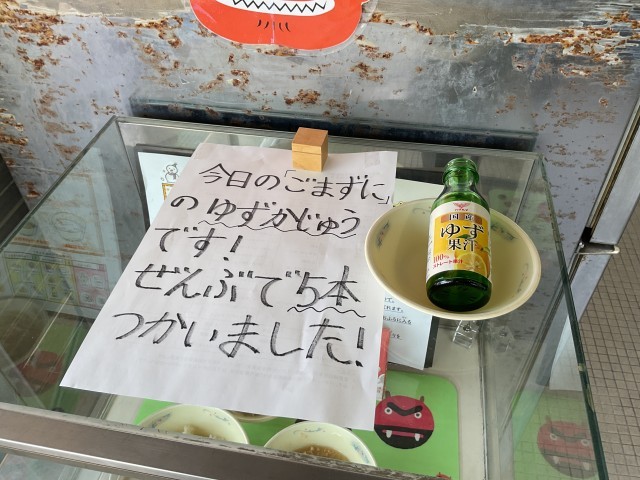 今日の「ごまずに」
の ゆずかじゅう
です!
ぜんぶで5本
つかいました!
国産
ゆず
果汁
100%
ストレート果汁